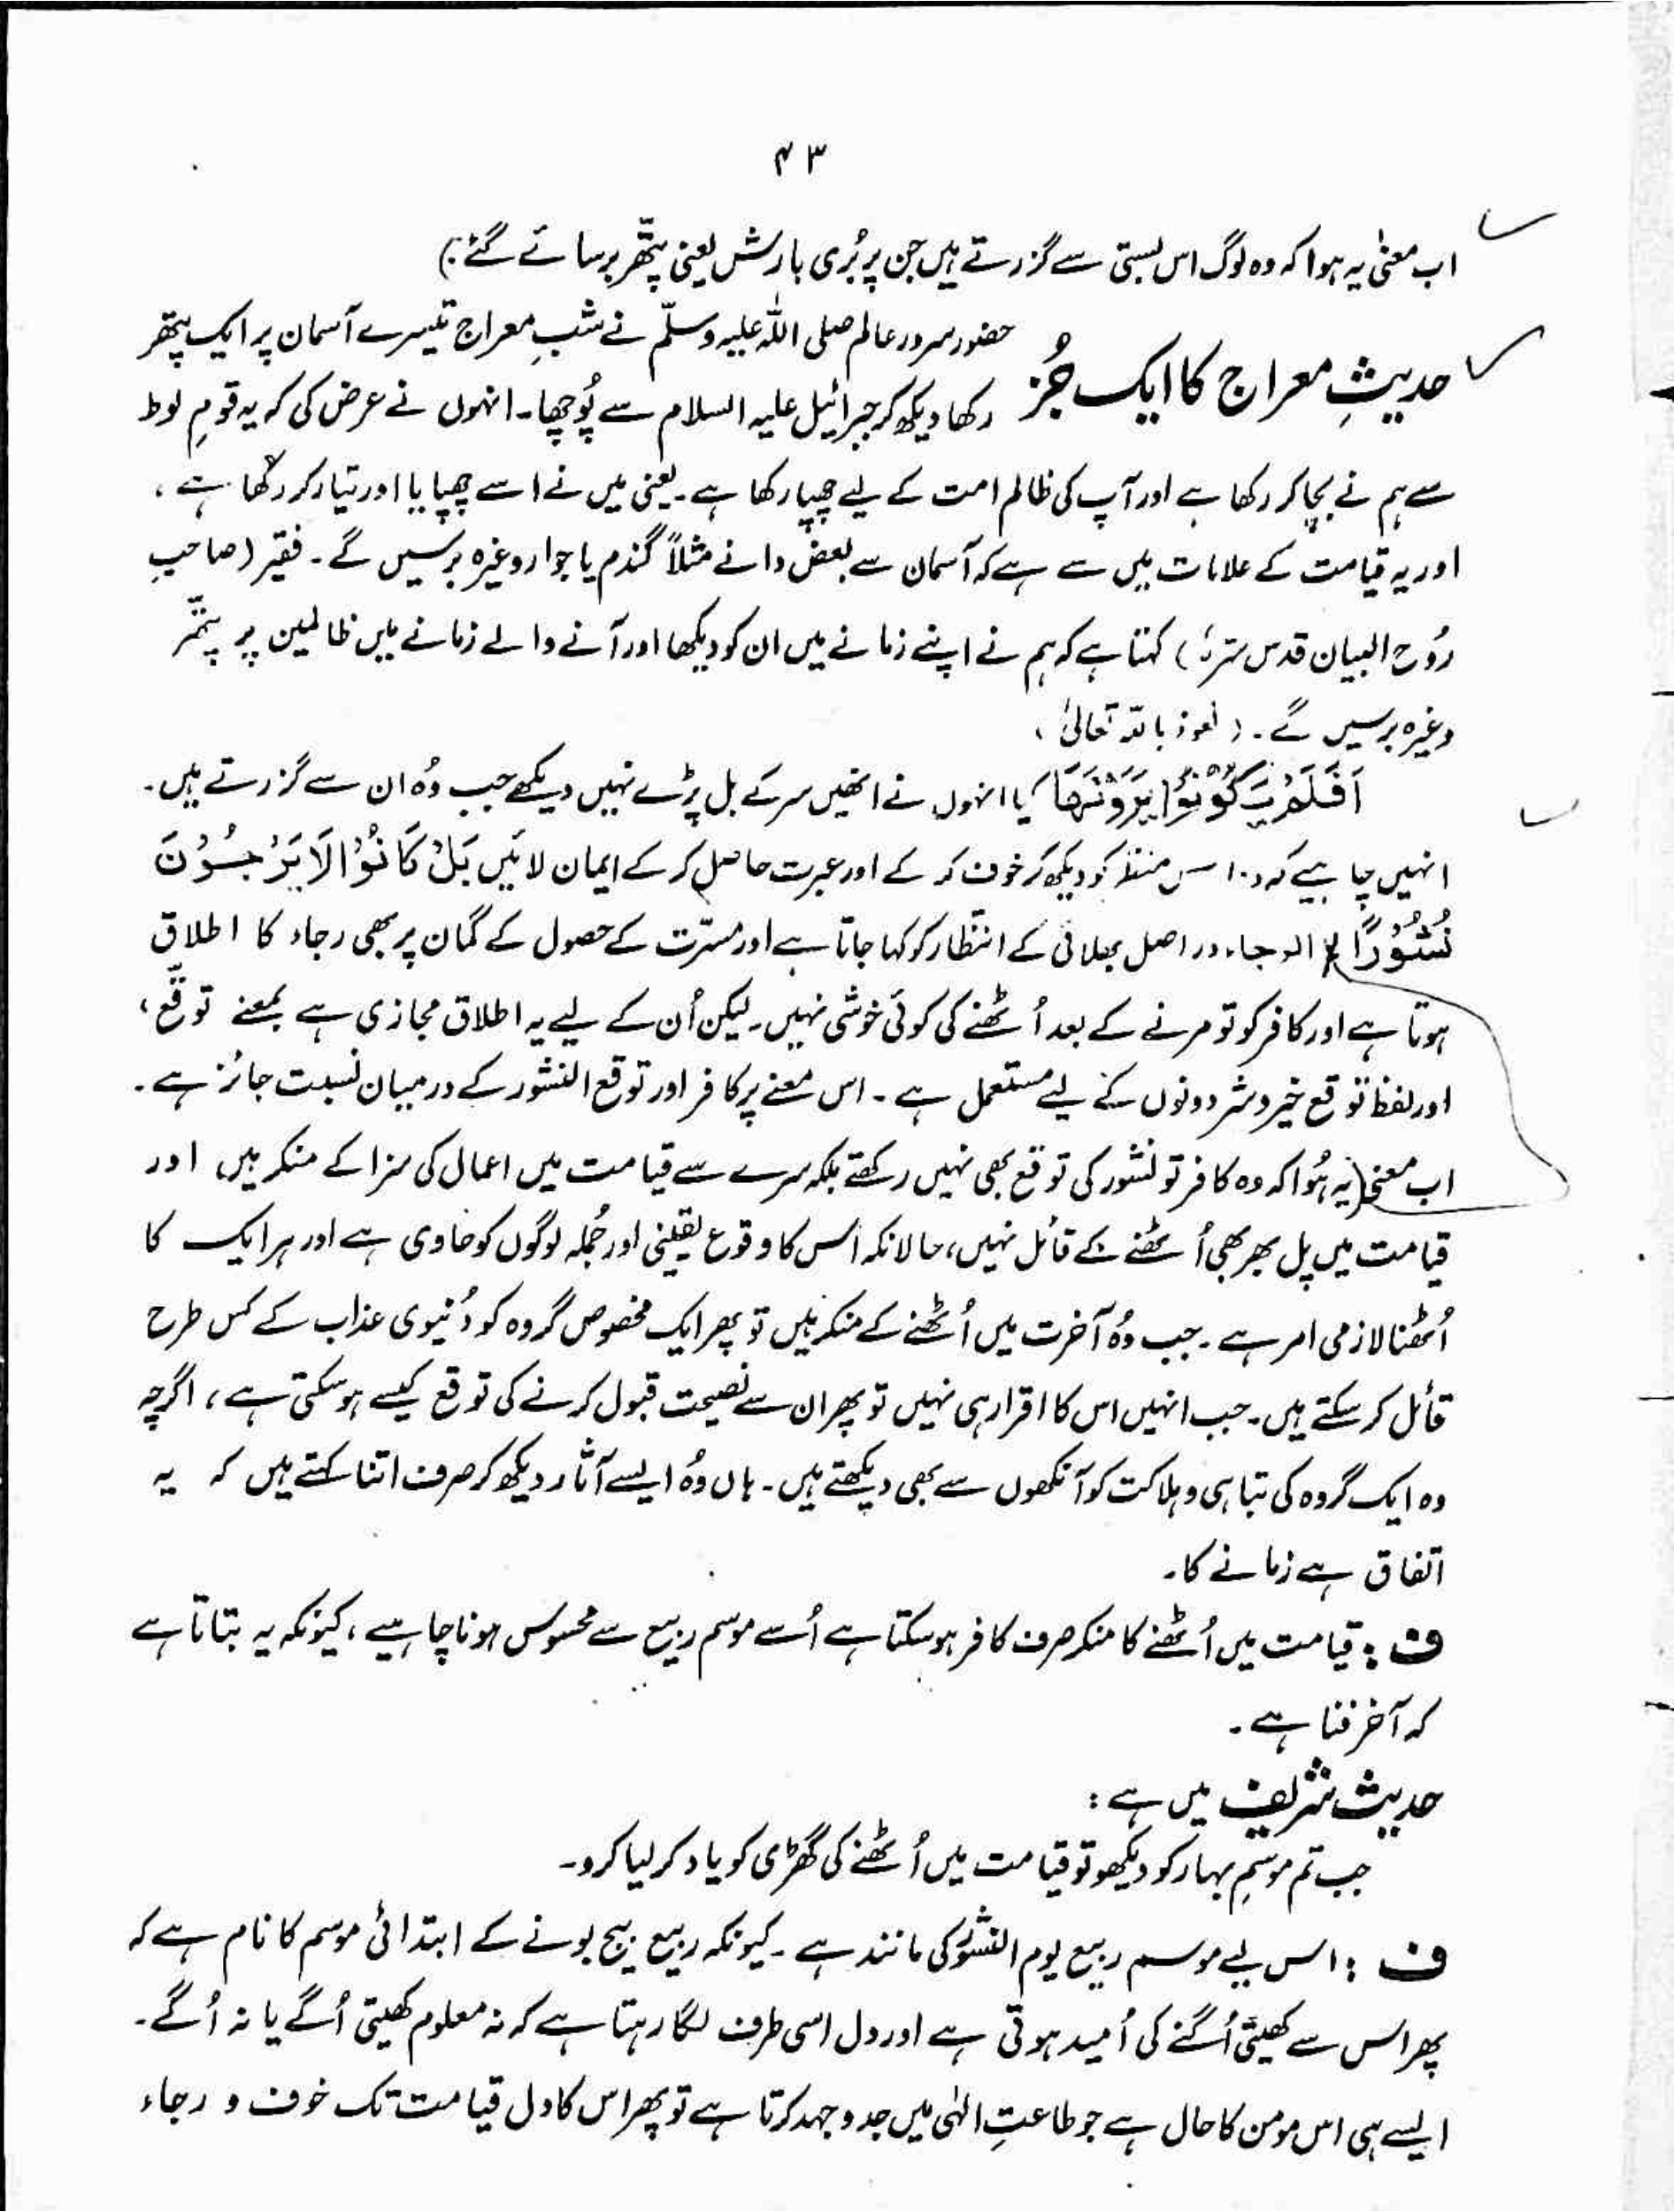 ۴۳
اب معنیٰ یہ ہوا کہ وہ لوگ اس بستی سے گزرتے ہیں جن پر بُری بارش یعنی پتھّر برسائے گئے :)
حدیثِ معراج کا ایک جُز
حضور سرور عالم صلی اللہ علیہ وسلّم نے شبِ معراج تیسرے آسمان پر ایک پتھر
رکھا دیکھ کر جبرائیل علیہ السلام سے پُوچھا۔ انہوں نے عرض کی کہ یہ قومِ لوط
سے ہم نے بچا کر رکھا ہے اور آپ کی ظالم امت کے لیے چھپا رکھا ہے۔ یعنی میں نے اسے چھپایا اور تیار کر رکھا ہے،
اور یہ قیامت کے علامات میں سے ہے کہ آسمان سے بعض دانے مثلاً گندم یا جوار وغیرہ برسیں گے۔ فقیر (صاحبِ
رُوح البیان قدس سترہٗ) کہتا ہے کہ ہم نے اپنے زمانے میں ان کو دیکھا اور آنے والے زمانے میں ظالمین پر پتھّر
وغیرہ برسیں گے۔ (نعوذ باللہ تعالیٰ)
اَفَلَمْ یَکُوْنُوْا یَرَوْنَھَا کیا انہوں نے انھیں سر کے بل پڑے نہیں دیکھے جب وُہ ان سے گزرتے ہیں۔
انہیں چاہیے کہ وہ اس منظر کو دیکھ کر خوف کر کے اور عبرت حاصل کر کے ایمان لائیں بَلْ کَانُوْا لَا یَرْجُوْنَ
نُشُوْرًا الرجاء در اصل بھلائی کے انتظار کو کہا جاتا ہے اور مسرّت کے حصول کے گمان پر بھی رجاء کا اطلاق
ہوتا ہے اور کافر کو تو مرنے کے بعد اُٹھنے کی کوئی خوشی نہیں۔ لیکن اُن کے لیے یہ اطلاق مجازی ہے بمعنے توقّع،
اور لفظ توقع خیر و شر دونوں کے لیے مستعمل ہے۔ اس معنے پر کافر اور توقع النشور کے درمیان نسبت جائز ہے۔
اب معنیٰ یہ ہُوا کہ وہ کافر تو نشور کی توقع بھی نہیں رکھتے بلکہ سرے سے قیامت میں اعمال کی سزا کے منکر ہیں اور
قیامت میں پل بھر بھی اُٹھنے کے قائل نہیں، حالانکہ اس کا وقوع یقینی اور جُملہ لوگوں کو حاوی ہے اور ہر ایک کا
اُٹھنا لازمی امر ہے۔ جب وُہ آخرت میں اُٹھنے کے منکر ہیں تو پھر ایک مخصوص گروہ کو دُنیوی عذاب کے کس طرح
قائل کر سکتے ہیں۔ جب انہیں اس کا اقرار ہی نہیں تو پھر ان سے نصیحت قبول کرنے کی توقع کیسے ہو سکتی ہے، اگرچہ
وہ ایک گروہ کی تباہی و ہلاکت کو آنکھوں سے بھی دیکھتے ہیں۔ ہاں وُہ ایسے آثار دیکھ کر صرف اتنا کہتے ہیں کہ یہ
اتفاق ہے زمانے کا۔
ف : قیامت میں اُٹھنے کا منکر صرف کافر ہو سکتا ہے اُسے موسم ربیع سے محسوس ہونا چاہیے، کیونکہ یہ بتاتا ہے
کہ آخر فنا ہے۔
حدیث شریف میں ہے :
جب تم موسمِ بہار کو دیکھو تو قیامت میں اُٹھنے کی گھڑی کو یاد کر لیا کرو۔
ف : اس لیے موسم ربیع یوم النشور کی مانند ہے۔ کیونکہ ربیع بیج بونے کے ابتدائی موسم کا نام ہے کہ
پھر اس سے کھیتی اُگنے کی اُمید ہوتی ہے اور دل اسی طرف لگا رہتا ہے کہ نہ معلوم کھیتی اُگے یا نہ اُگے۔
ایسے ہی اس مومن کا حال ہے جو طاعتِ الٰہی میں جدوجہد کرتا ہے تو پھر اس کا دل قیامت تک خوف و رجاء